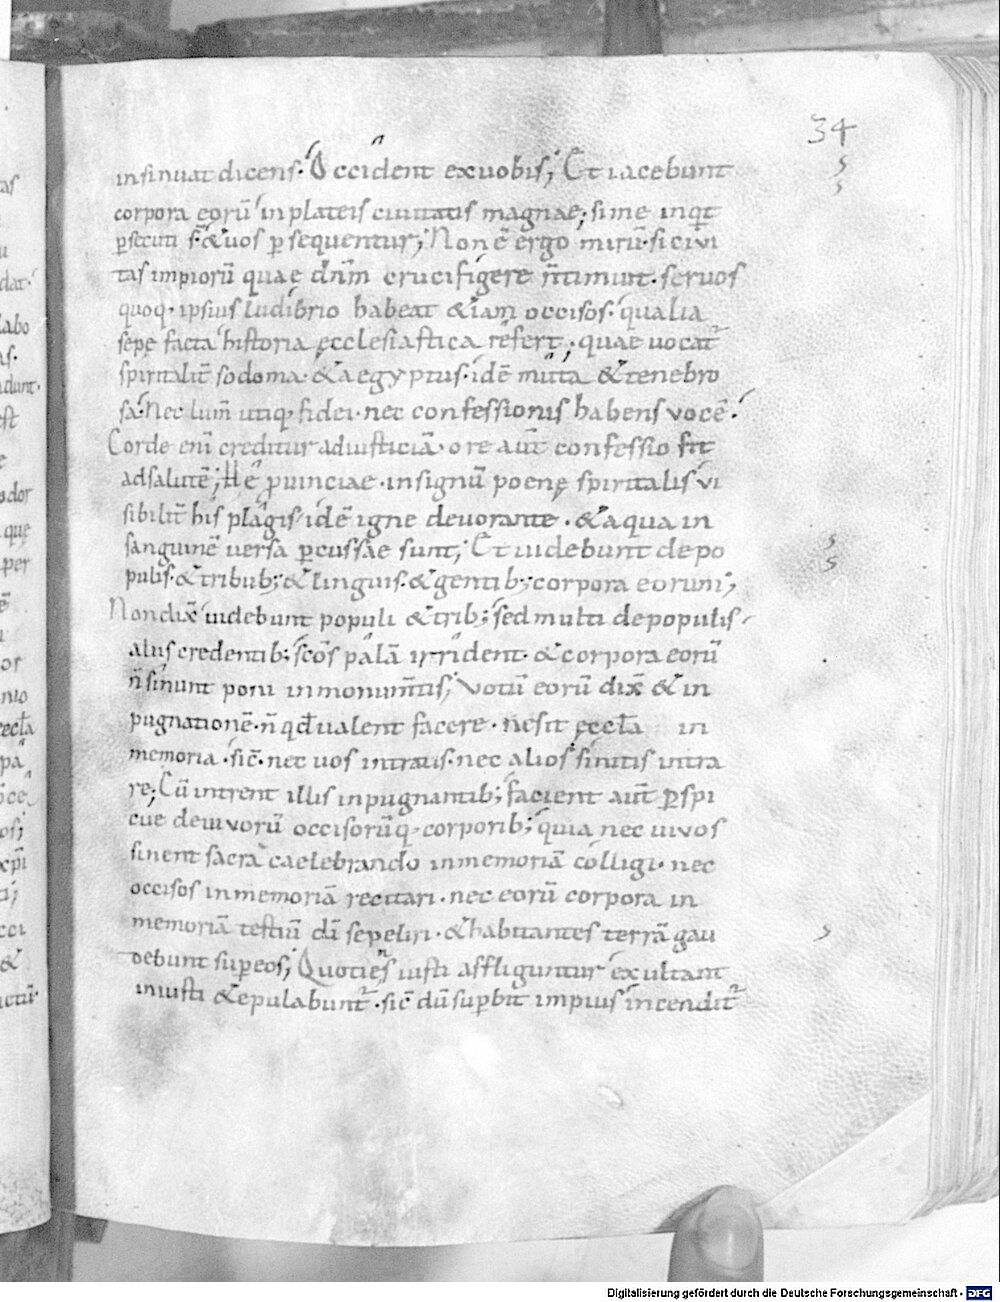 34
insinuat dicens· Occident exuobis; Et iacebunt
corpora eorū inplateis ciuitatis magnae; sime inq̄t
ꝑsecuti s̄· & uos ꝑsequentur; Non ē ergo mirū· si civi
tas impiorū quae dn̄m crucifigere n̄ timuit· seruos
quoq· ipsius ludibrio habeat & iam occisos· qualia
sepe facta historia ęcclesiastica refert; quae uocat̄
spiritalit̄ sodoma· & aegyptus· idē muta & tenebro
sa· Nec lum̄ utiq· fidei· nec confessionis habens vocē·
Corde eni creditur adiusticiā· ore aut̄ confessio fit
adsalutē; Hę ꝓuinciae· insignū poenę spiritalis vi
sibilit̄ his plagis· idē igne deuorante· & aqua in
sanguinē uersa ꝑcussae sunt; Et uidebunt depo
pulis· & tribub; & linguis· & gentib; corpora eorum;
Non dix̄ uidebunt populi & trib; sed multi depopulis
aliis credentib; sc̄os palā irrident· & corpora eorū
n̄ sinunt poni inmonum̄tis; Votū eorū dix̄ & in
pugnationē· n̄ qd̄ ualent facere· ne sit ęccl̄a in
memoria· sic̄· nec uos intratis· nec alios sinitis intra
re; Cū intrent illis inpugnantib; facient aut̄ ꝑspi
cue deuivorū occisorūq· corporib; quia nec uivos
sinent sacra caelebrando inmemoriā colligi· nec
occisos inmemoriā recitari· nec eorū corpora in
memoriā testiū dī sepeliri· & habitantes terrā gau
debunt super eos; Quoties iusti affliguntur exultant
iniusti & epulabunt̄· sic̄ dū suꝑbit impius incendit̄
Digitalisierung gefördert durch die Deutsche Forschungsgemeinschaft · DFG